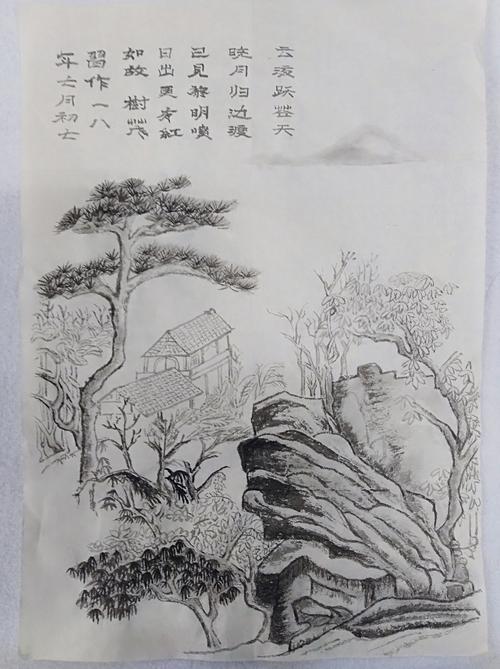 云凌跃苍天
晓月归边渡
已见黎明嗅
日出更才紅
如故 樹茂
習作 一八
年六月初七